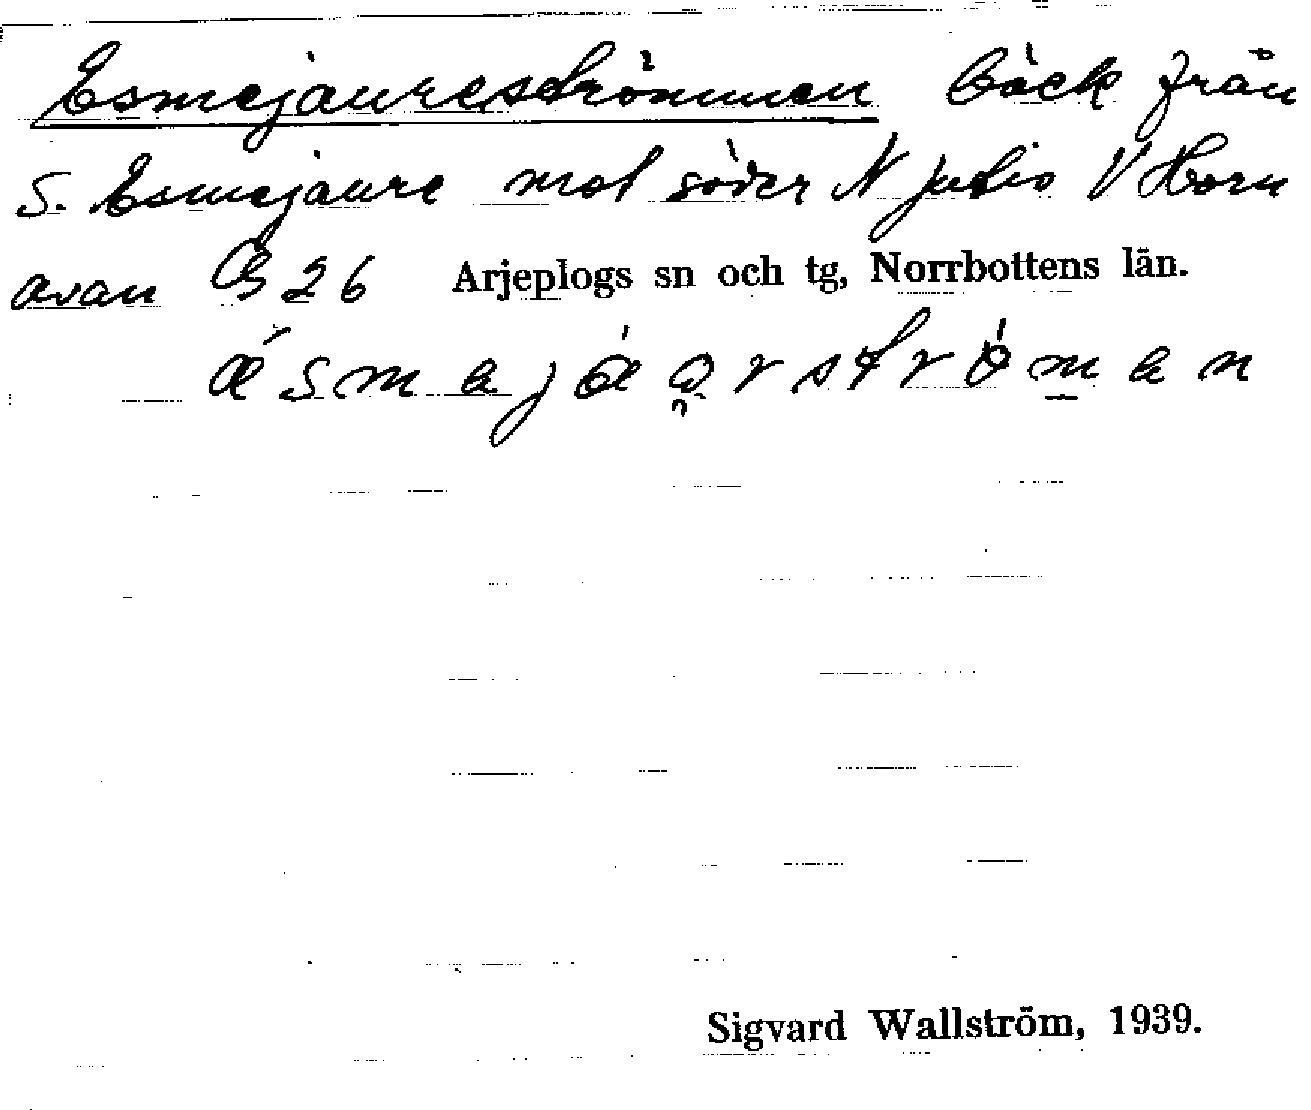 Esmejaureströmmen bäck från
S. Esmejaure mot söder N Jutis V Horn
avan B 26 Arjeplogs sn och tg, Norrbottens län.
Sigvard Wallström, 1939.